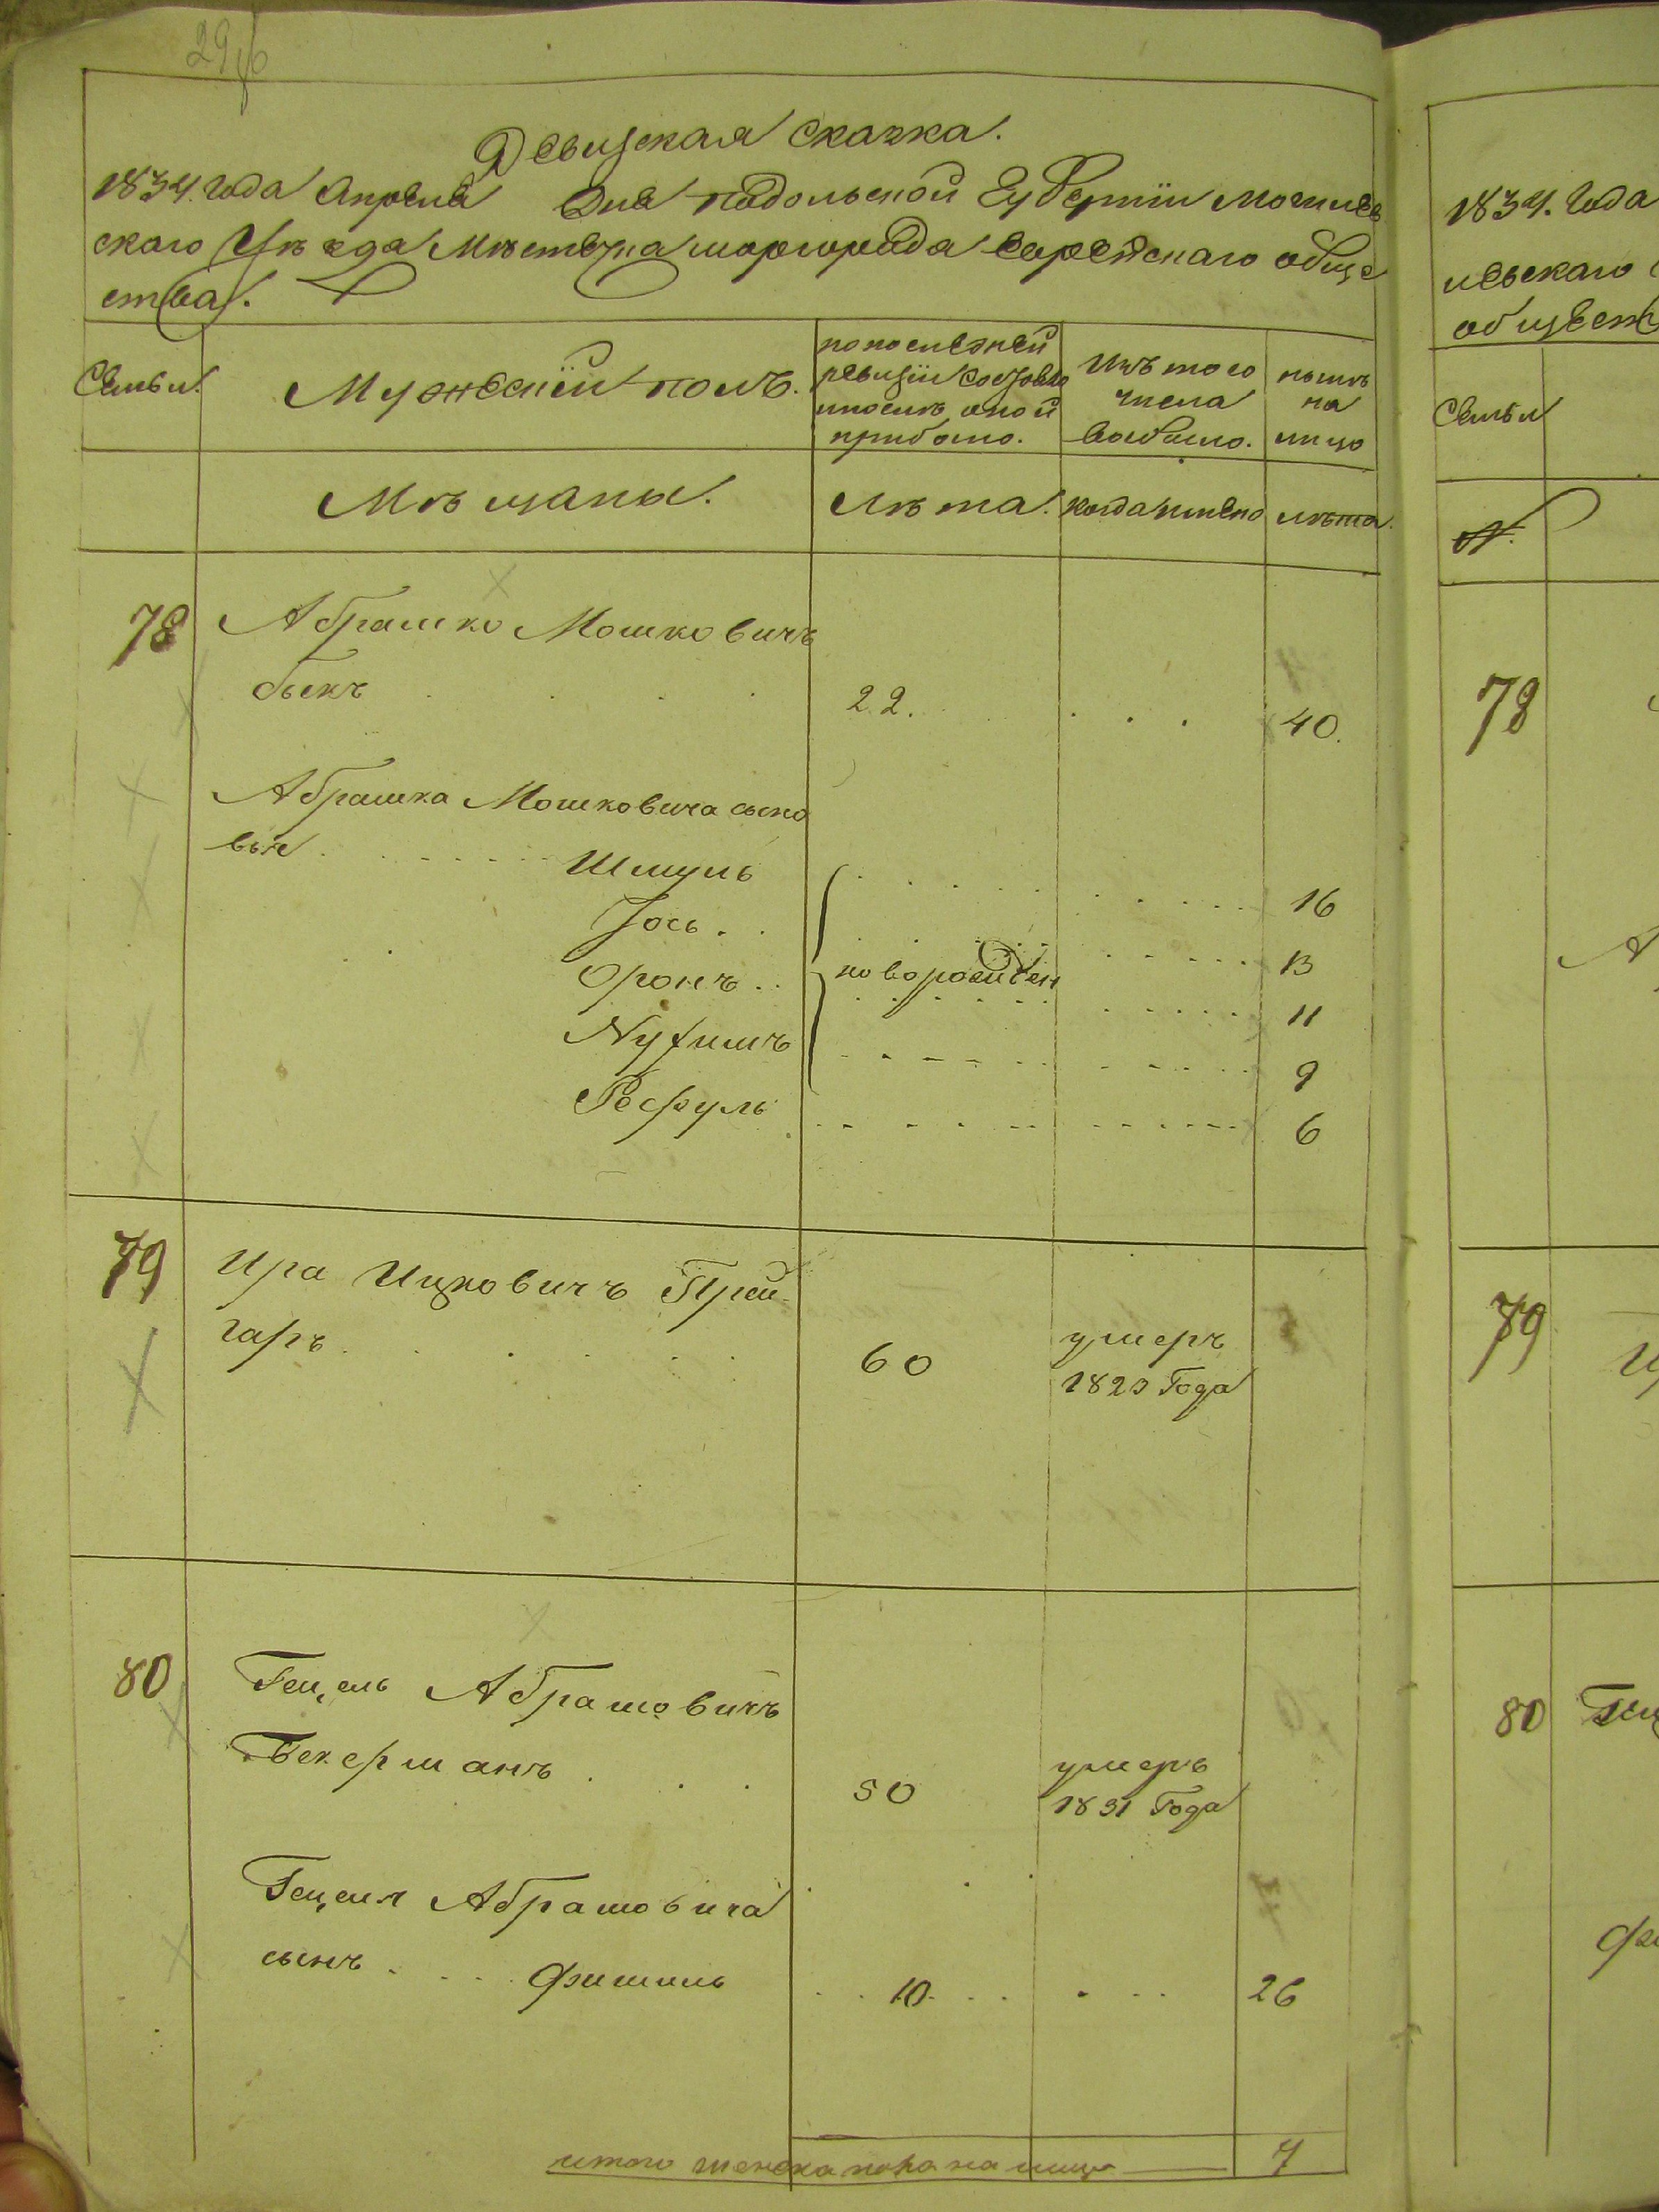 29
Ревизская сказка.
1834 года Апреля Дня Подольской Губернии Могилев
скаго Уѣзда Мѣстечка Шаргорода Еврейскаго обще
ства.
Семьи.
Мужескій полъ.
по последней
ревизіи состояло
и послѣ оной
прибыло.
Изъ того
числа
выбыло.
нынѣ
на
лицо
Мѣщаны.
Лѣта.
когда именно
лѣта.
78
Абрашко Мошковичъ
быкъ
22.
40.
Абрашка Мошковича сыно
вье
Шмуль
16
Іось
13
Оронъ
новорожден
11
Нухимъ
9
Рефуль
6
79
Ицковичъ
гаръ
60
умеръ
Года
80
Гецель Абрамовичъ
Бекерманъ
50
умеръ
1831 Года
Гецеля Абрамовича
сынъ
Фишель
10
26
итого на лицо
7
1834. Года
левскаго
общест
Семьи
№.
78
А
79
80